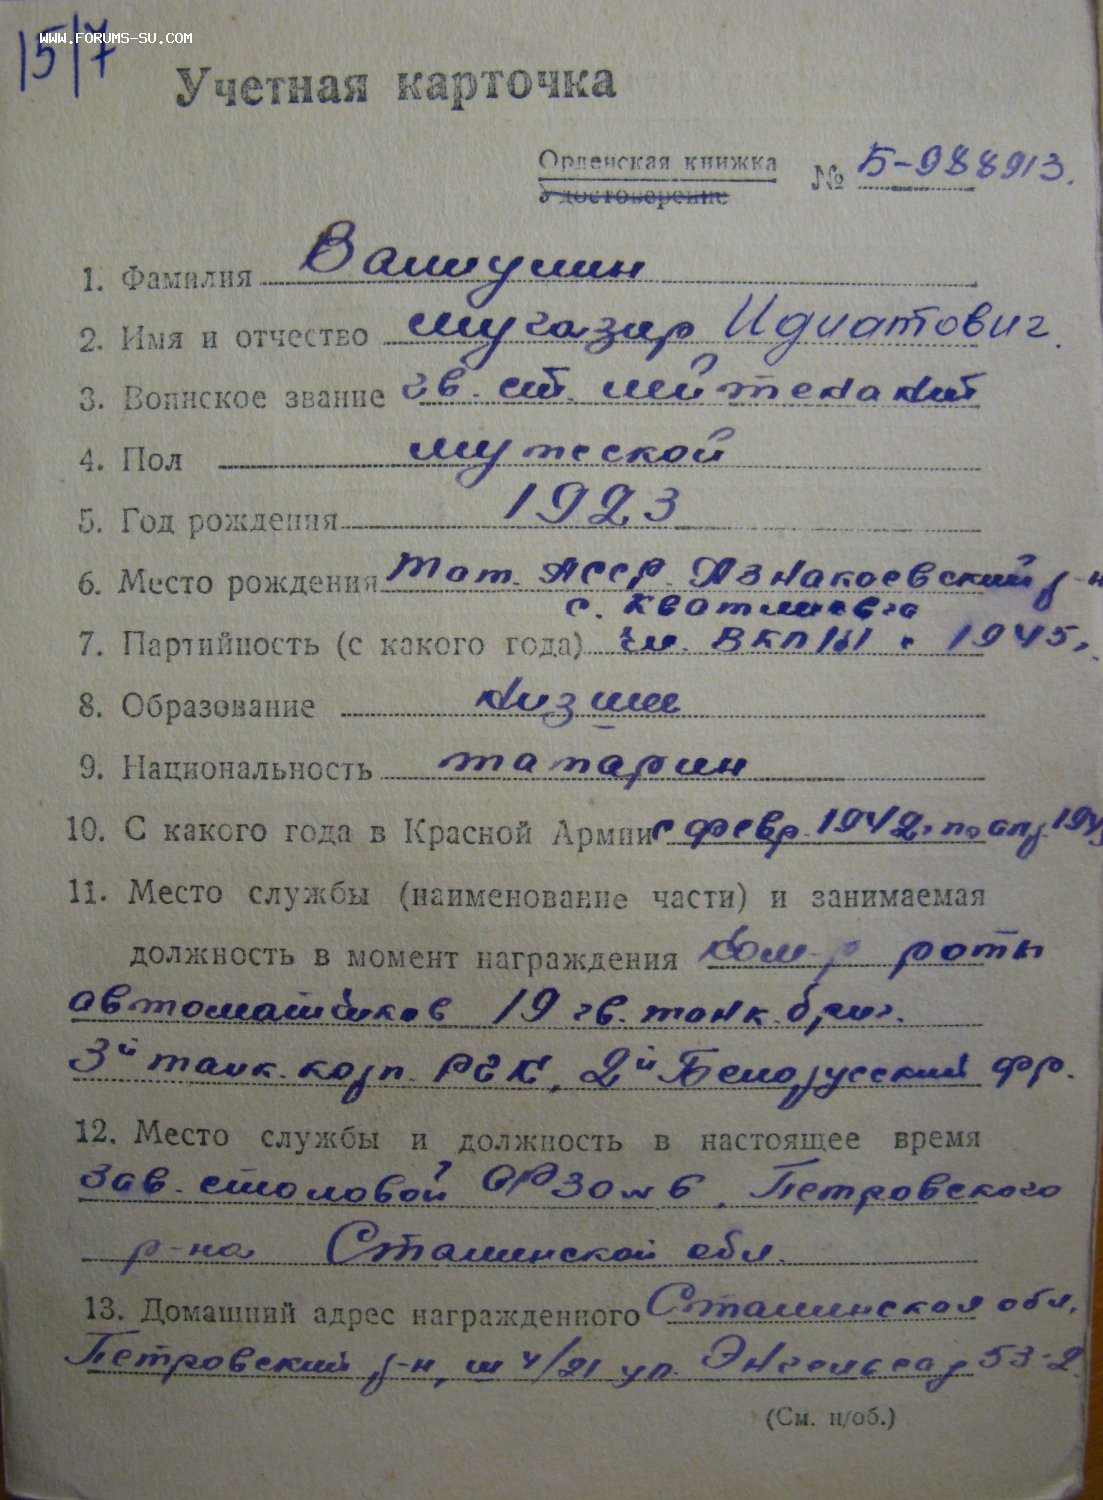 15/7
WWW.FORUMS-SU.COM
Учетная карточка
Орденская книжка № Б-988913.
Удостоверение
1. Фамилия Валиулин
2. Имя и отчество Мугазир Идиатович.
3. Воинское звание гв. ст. лейтенант
4. Пол мужской
5. Год рождения 1923
6. Место рождения Тат. АССР. Азнакаевский р-н
с.
7. Партийность (с какого года) чл. ВКП/б/ с 1945г.
8. Образование низшее
9. Национальность татарин
10. С какого года в Красной Армии с февр. 1942г по апр.
11. Место службы (наименование части) и занимаемая
должность в момент награждения ком-р роты
автоматчиков 19 гв. танк. бриг.
3й танк. корп. РГК, 2й Белорусский фр.
12. Место службы и должность в настоящее время
зав. столовой ОРЗ №6, Петровского
р-на Сталинской обл.
13. Домашний адрес награжденного Сталинская обл.
Петровский р-н, ш 4/21 ул. Энгельса д 53-2
(См. н/об.)